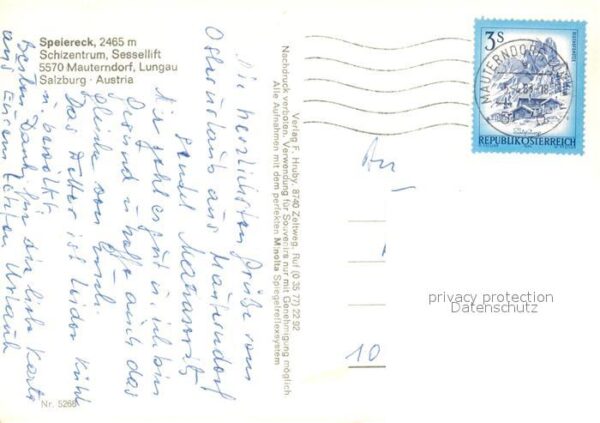 Speiereck, 2465 m
Schizentrum, Sessellift
5570 Mauterndorf, Lungau
Salzburg · Austria
Die herzlichsten Grüße vom
Osterurlaub aus Mauterndorf
sendet
Mir geht es gut u. bin
Gesund u. hoffe auch das
Gleiche von Euch.
Das Wetter ist leider kühl
u. bewölkt.
Besten Dank für die liebe Karte
aus Eurem letzten Urlaub
Nr. 5268
Verlag F. Hruby, 8740 Zeltweg, Ruf (0 35 77) 22 92
Nachdruck verboten. Verwendung für Souvenirs nur mit Genehmigung möglich
Alle Aufnahmen mit dem perfekten Minolta Spiegelreflexsystem
3 S
MAUTERNDORF
REPUBLIK ÖSTERREICH
An
10
privacy protection
Datenschutz